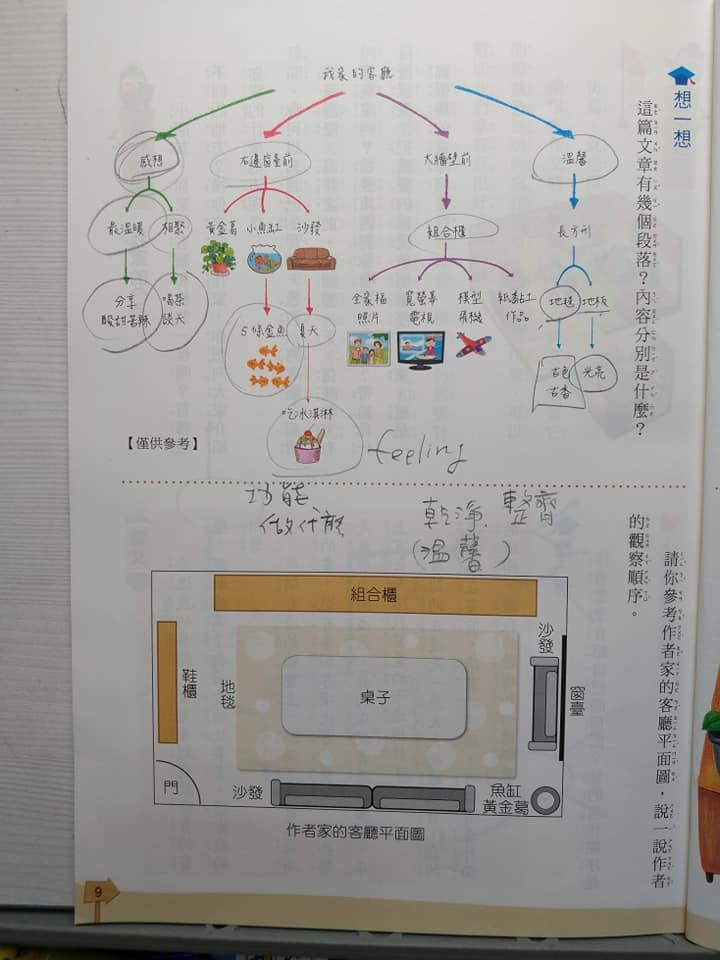 想一想
這篇文章有幾個段落？內容分別是什麼？
我家的客廳
溫馨
長方形
地毯
地板
古色
古香
光亮
大牆壁前
組合櫃
全家福
照片
寬螢幕
電視
模型
飛機
紙黏土
作品
右邊窗臺前
黃金葛
小魚缸
沙發
5條金魚
夏天
吃冰淇淋
感想
最溫暖
相聚
分享
酸甜苦辣
喝茶
談天
【僅供參考】
feeling
功能
做什麼
乾淨、整齊
(溫馨)
請你參考作者家的客廳平面圖，說一說作者
的觀察順序。
組合櫃
沙發
窗臺
鞋櫃
地毯
桌子
門
沙發
魚缸
黃金葛
作者家的客廳平面圖
9